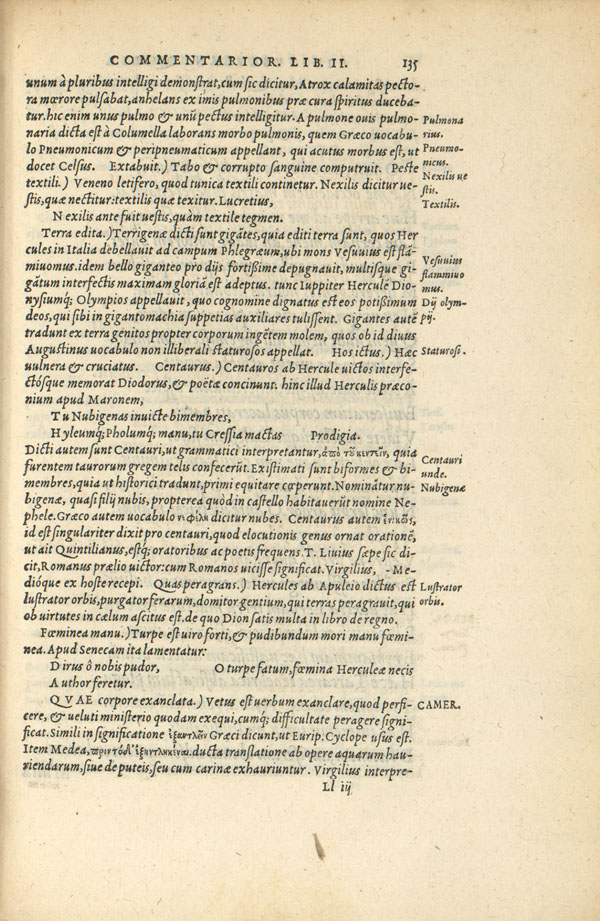 COMMENTARIOR. LIB. II. 135
unum à pluribus intelligi demonstrat, cum sic dicitur, Atrox calamitas pecto-
ra mœrore pulsabat, anhelans ex imis pulmonibus præ cura spiritus duceba-
tur. hic enim unus pulmo & unū pectus intelligitur. A pulmone ouis pulmo-
Pulmona
naria dicta est à Columella laborans morbo pulmonis, quem Græco uocabu-
rius.
lo Pneumonicum & peripneumaticum appellant, qui acutus morbus est, ut
Pneumo-
nicus.
docet Celsus. Extabuit.) Tabo & corrupto sanguine computruit. Peste
Nexilis ue
textili.) Veneno letifero, quod tunica textili continetur. Nexilis dicitur ue-
stis.
stis, quæ nectitur: textilis quæ texitur. Lucretius,
Textilis.
Nexilis ante fuit uestis, quàm textile tegmen.
Terra edita.) Terrigenæ dicti sunt gigātes, quia editi terra sunt, quos Her
cules in Italia debellauit ad campum Phlegræum, ubi mons Vesuuius est flā-
Vesuuius
miuomus. idem bello giganteo pro dijs fortißime depugnauit, multisque gi-
flammiuo
gātum interfectis maximam gloriā est adeptus. tunc Iuppiter Herculē Dio-
mus.
nysiumq; Olympios appellauit, quo cognomine dignatus est eos potißimum
Dij olym-
deos, qui sibi in gigantomachia suppetias auxiliares tulissent. Gigantes autē
pij.
tradunt ex terra genitos propter corporum ingētem molem, quos ob id diuus
Augustinus uocabulo non illiberali staturosos appellat. Hos ictus.) Hæc
Staturosi.
uulnera & cruciatus. Centaurus.) Centauros ab Hercule uictos interfe-
ctósque memorat Diodorus, & poëtæ concinunt. hinc illud Herculis præco-
nium apud Maronem,
Tu Nubigenas inuicte bimembres,
Hyleumq; Pholumq; manu, tu Cressia mactas Prodigia.
Dicti autem sunt Centauri, ut grammatici interpretantur, ἀπὸ τοῦ κεντεῖν, quia
Centauri
furentem taurorum gregem telis confecerūt. Existimati sunt biformes & bi-
unde.
membres, quia ut historici tradunt, primi equitare cœperunt. Nominātur nu-
Nubigenæ
bigenæ, quasi filij nubis, propterea quòd in castello habitauerūt nomine Ne-
phele. Græco autem uocabulo νεφέλη dicitur nubes. Centaurus autem ἑνικῶς,
id est singulariter dixit pro centauri, quod elocutionis genus ornat orationē,
ut ait Quintilianus, estq; oratoribus ac poetis frequens. T. Liuius sæpe sic di-
cit, Romanus prælio uictor: cum Romanos uicisse significat. Virgilius, -Me-
dióque ex hoste recepi. Quas peragrans.) Hercules ab Apuleio dictus est
Lustrator
lustrator orbis, purgator ferarum, domitor gentium, qui terras peragrauit, qui
orbis.
ob uirtutes in cælum ascitus est. de quo Dion satis multa in libro de regno.
Fœminea manu.) Turpe est uiro forti, & pudibundum mori manu fœmi-
nea. Apud Senecam ita lamentatur:
Dirus ô nobis pudor, O turpe fatum, fœmina Herculeæ necis
Author feretur.
QVAE corpore exanclata.) Vetus est uerbum exanclare, quod perfi-
CAMER.
cere, & ueluti ministerio quodam exequi, cumq; difficultate peragere signi-
ficat. Simili in significatione ἐξαντλεῖν Græci dicunt, ut Eurip. Cyclope usus est.
Item Medea, ducta translatione ab opere aquarum hau-
riendarum, siue de puteis, seu cum carinæ exhauriuntur. Virgilius interpre-
Ll iij